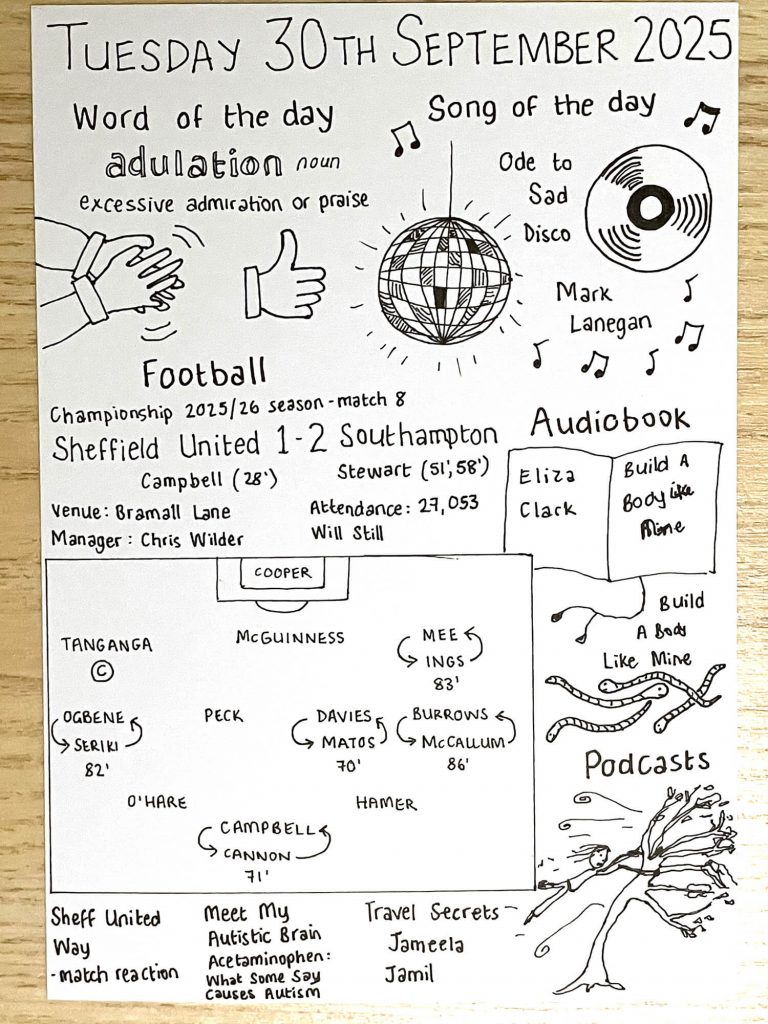 TUESDAY 30TH SEPTEMBER 2025
Word of the day
adulation noun
excessive admiration or praise
Song of the day
Ode to
Sad
Disco
Mark
Lanegan
Football
Championship 2025/26 season - match 8
Sheffield United 1-2 Southampton
Campbell (28')
Stewart (51', 58')
Venue: Bramall Lane
Attendance: 27,053
Manager: Chris Wilder
Will Still
Audiobook
Eliza
Clark
Build A
Body like
Mine
Build
A Body
Like Mine
COOPER
TANGANGA
C
McGUINNESS
MEE
INGS
83'
OGBENE
SERIKI
82'
PECK
DAVIES
MATOS
70'
BURROWS
McCALLUM
86'
O'HARE
HAMER
CAMPBELL
CANNON
71'
Podcasts
Sheff United
Way
- match reaction
Meet My
Autistic Brain
Acetaminophen:
What Some Say
Causes Autism
Travel Secrets -
Jameela
Jamil